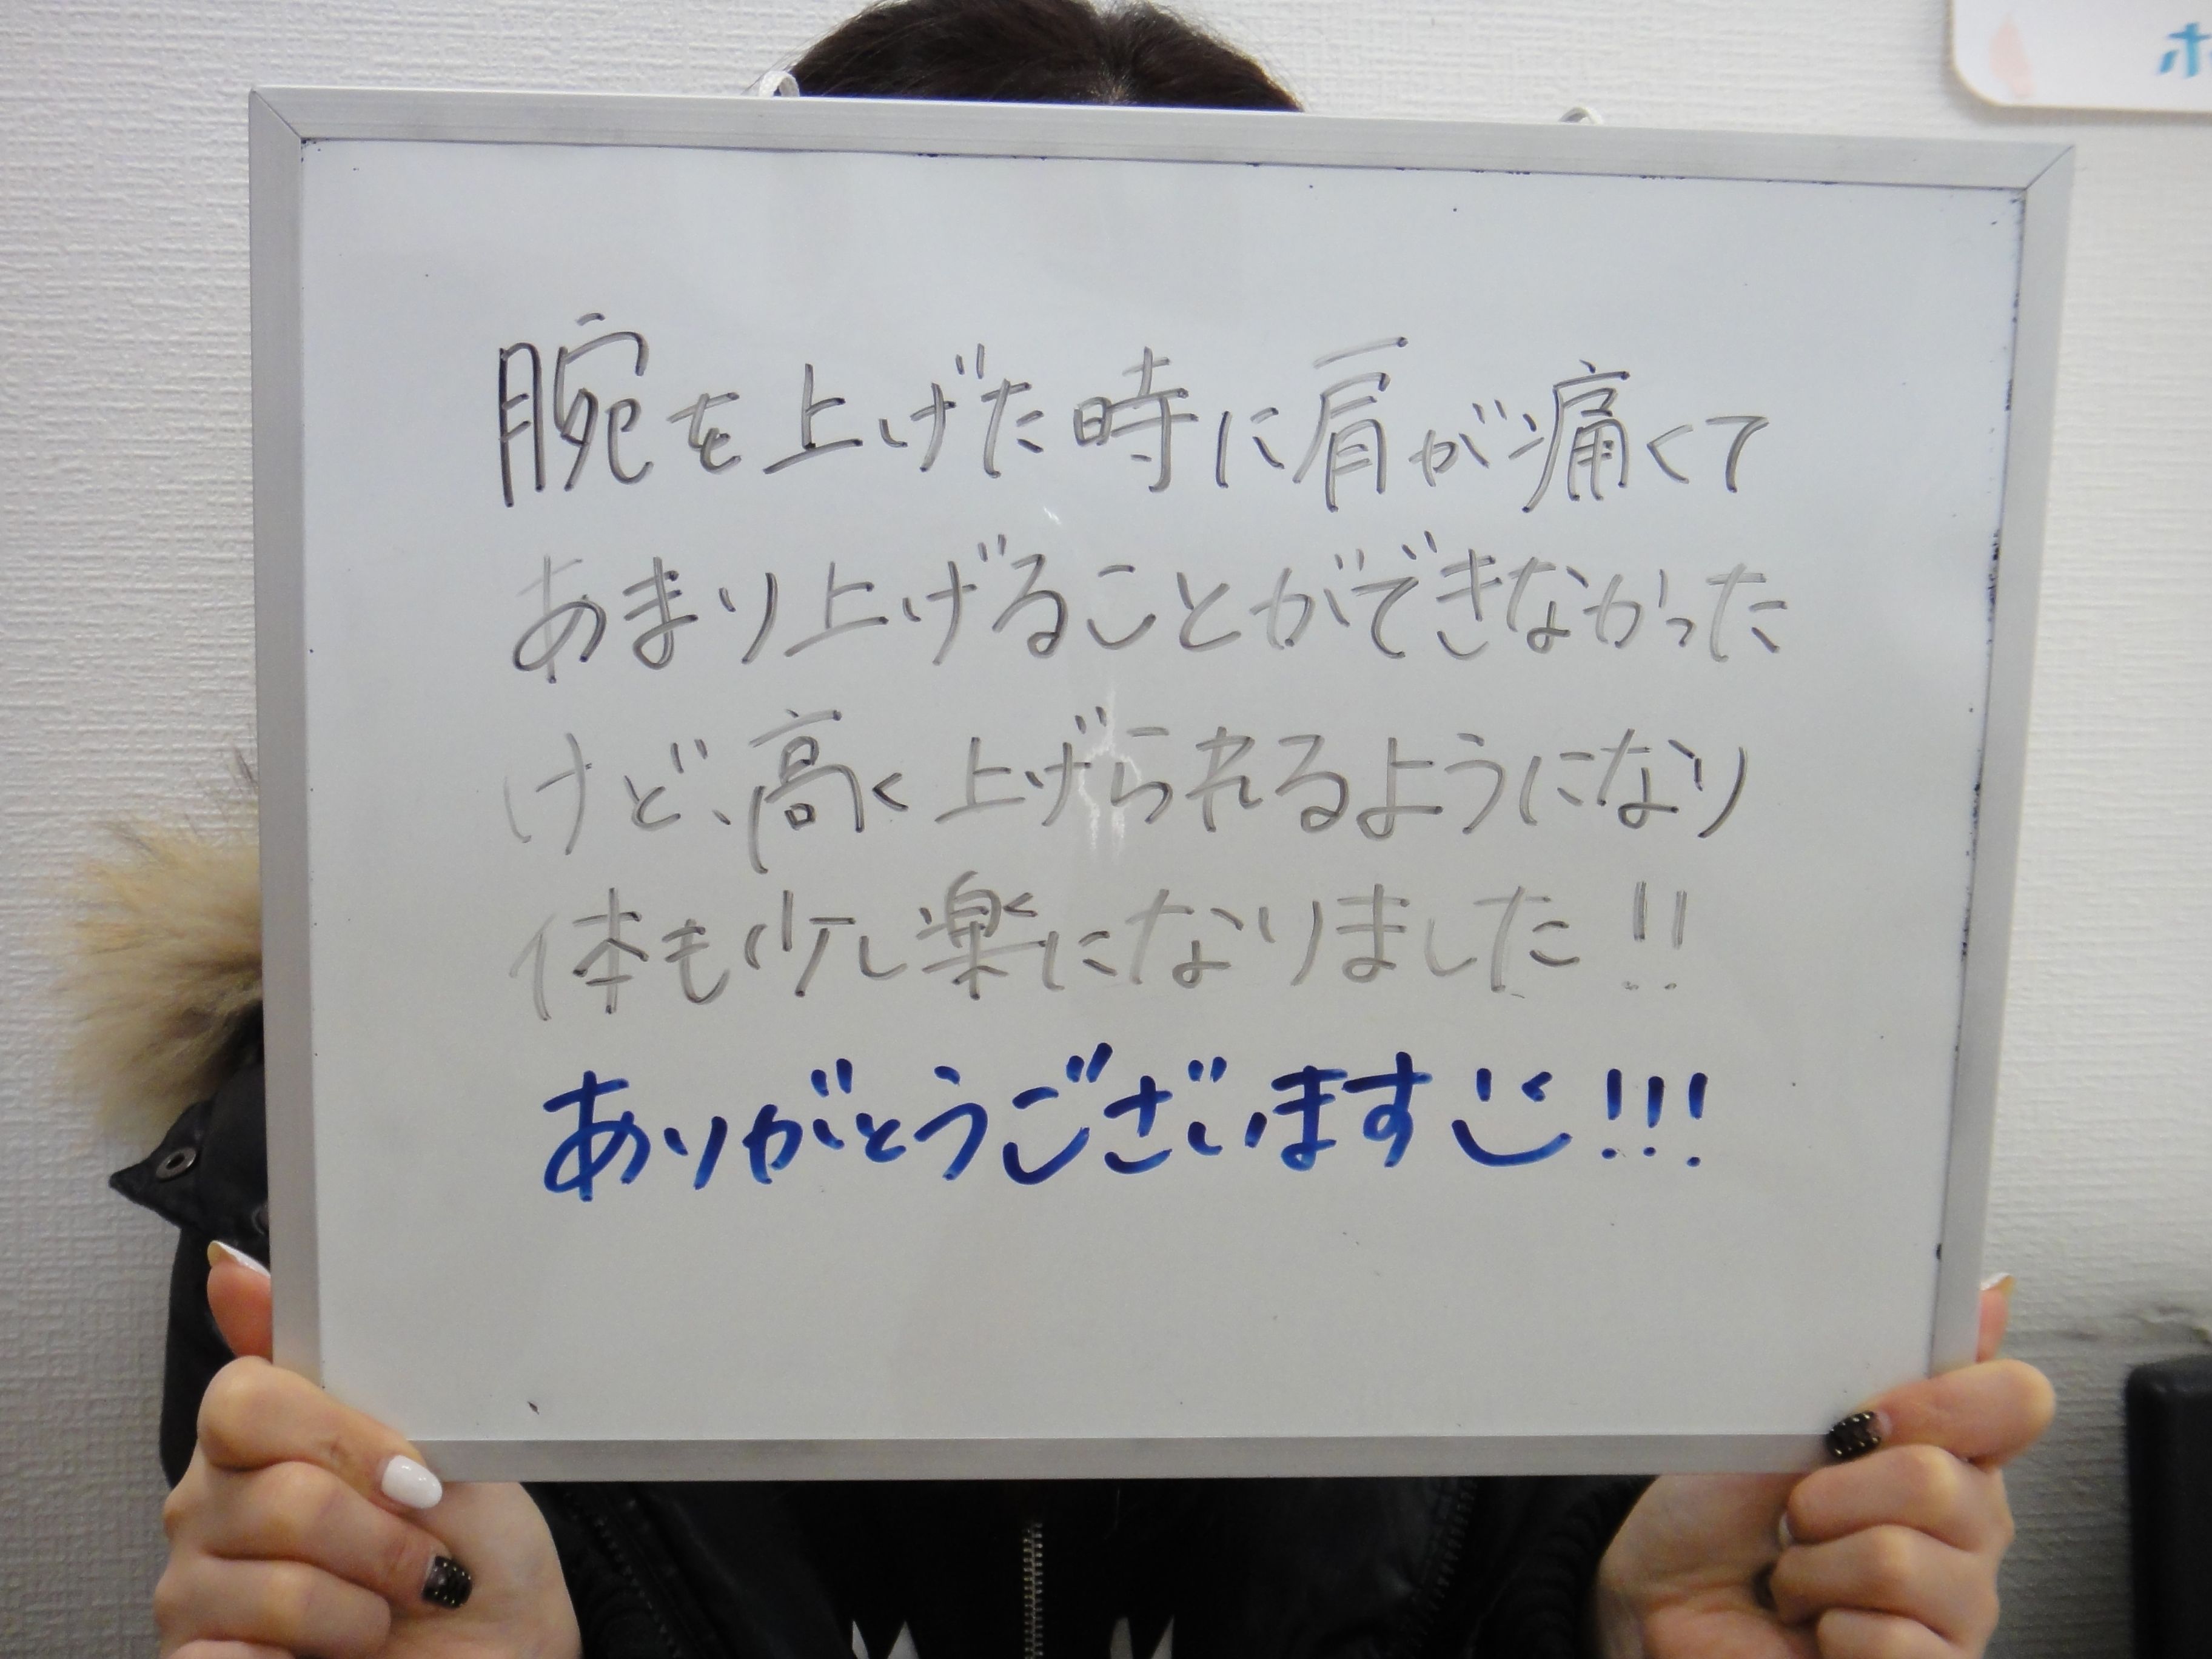 ホ
腕を上げた時に肩が痛くて
あまり上げることができなかった
けど、高く上げられるようになり
体も少し楽になりました!!
ありがとうございます!!!